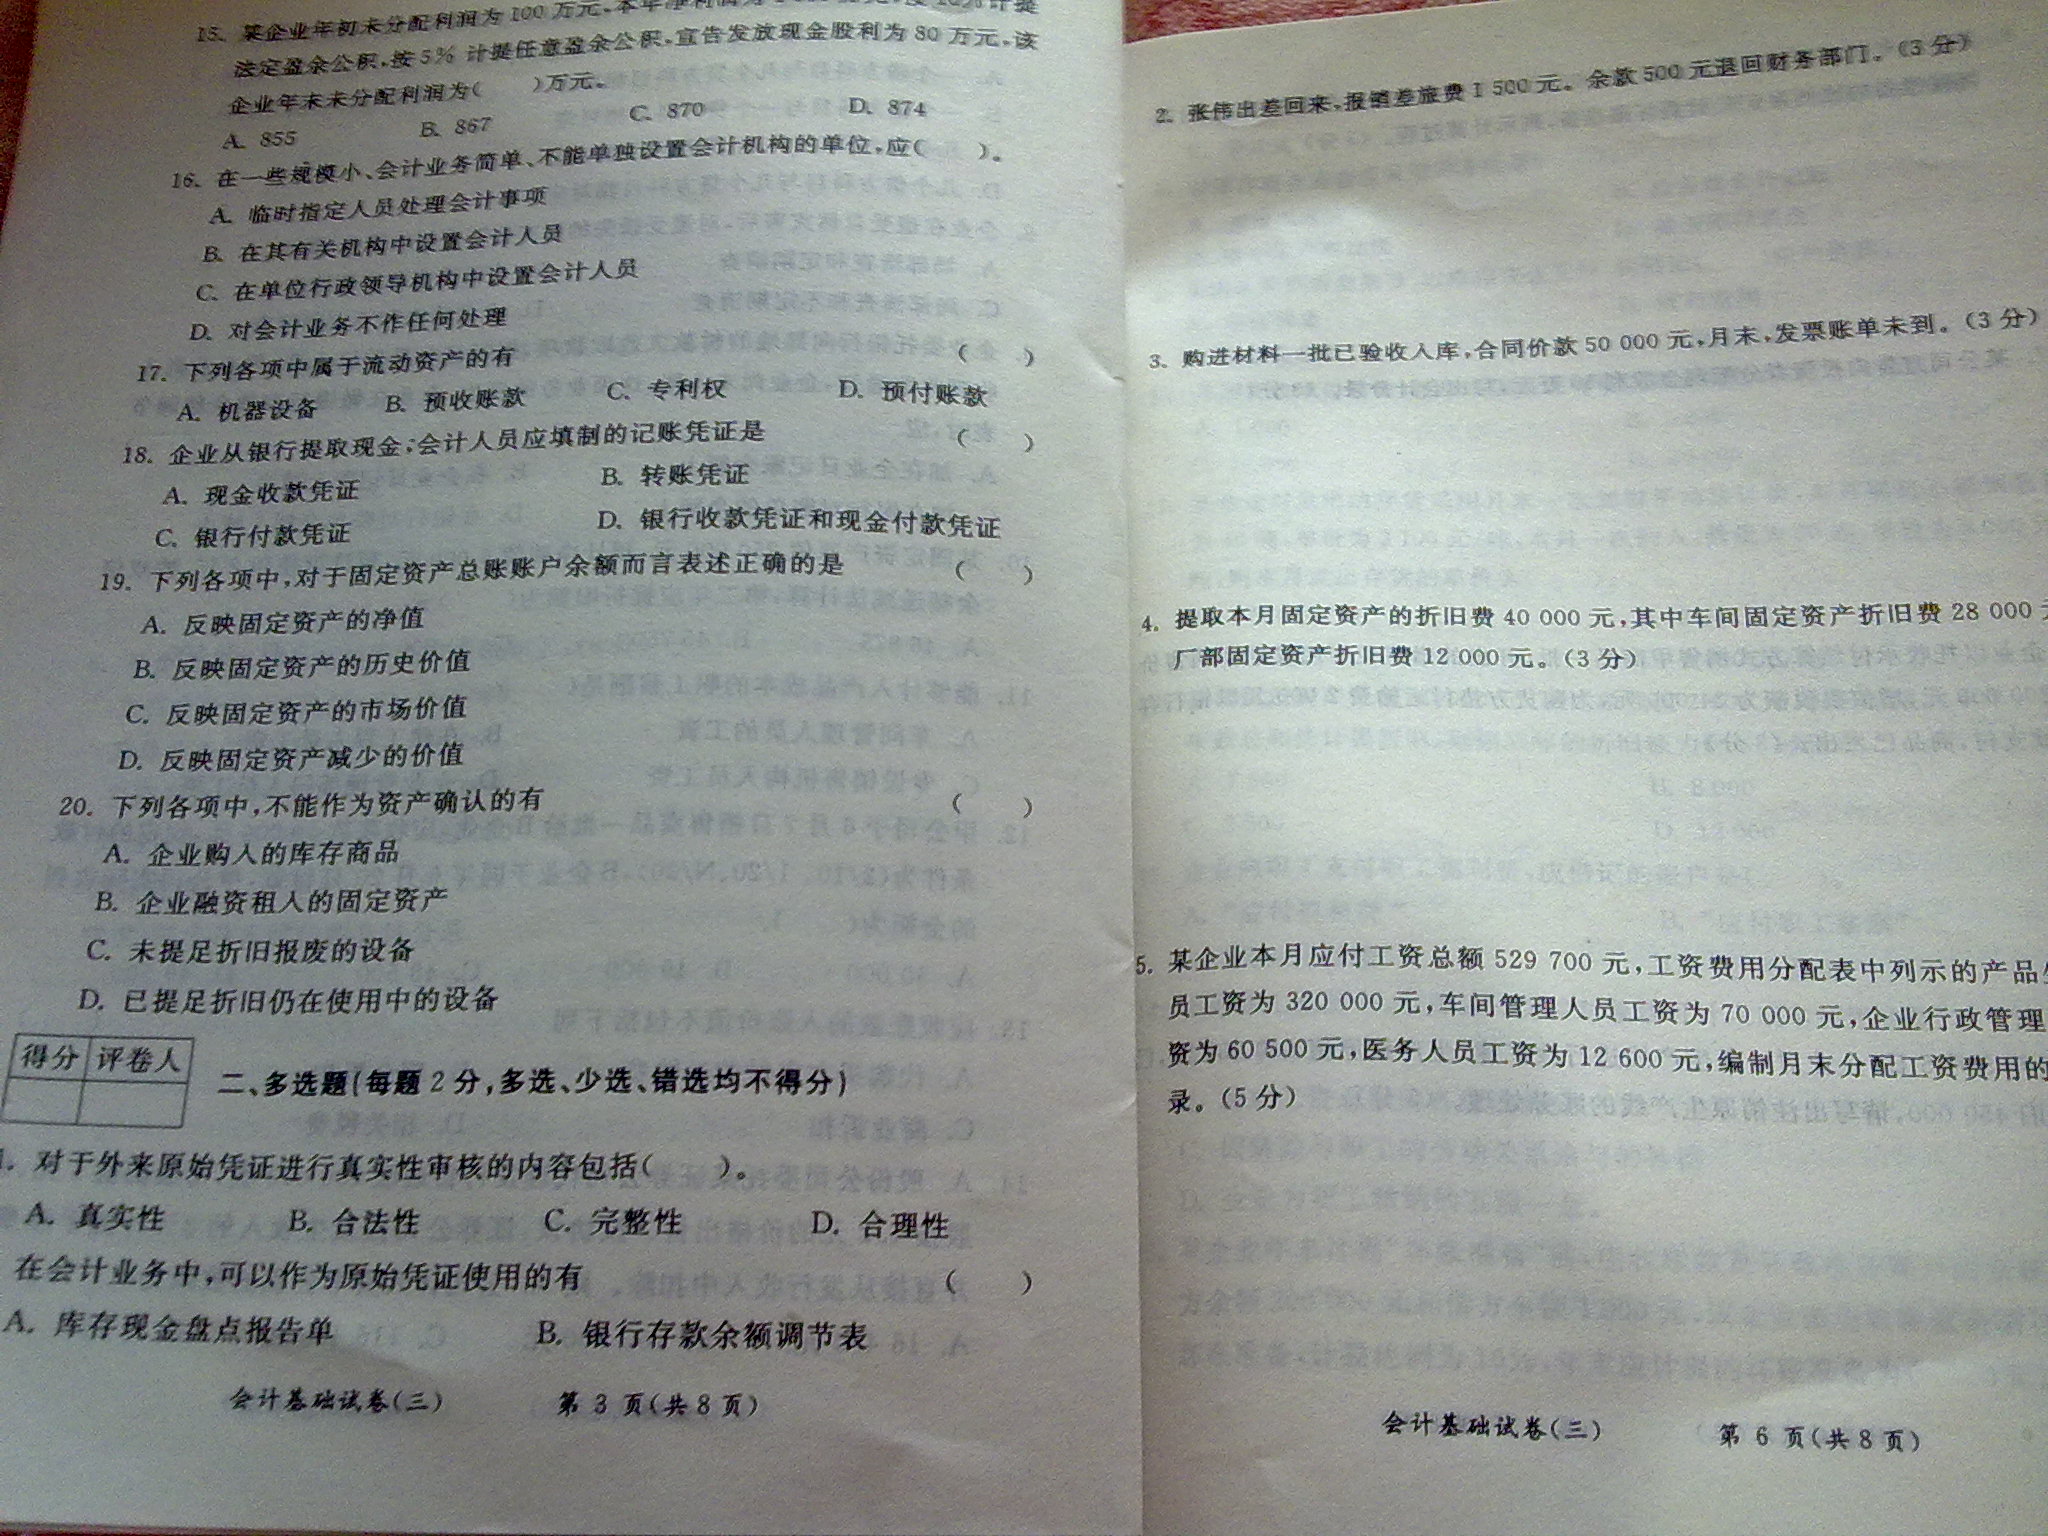 15. 某企业年初未分配利润为100万元,本年净利润为1 000万元,按10%计提
法定盈余公积,按5%计提任意盈余公积,宣告发放现金股利为80万元,该
企业年末未分配利润为( )万元。
A. 855 B. 867 C. 870 D. 874
16. 在一些规模小、会计业务简单、不能单独设置会计机构的单位,应( )。
A. 临时指定人员处理会计事项
B. 在其有关机构中设置会计人员
C. 在单位行政领导机构中设置会计人员
D. 对会计业务不作任何处理
17. 下列各项中属于流动资产的有 ( )
A. 机器设备 B. 预收账款 C. 专利权 D. 预付账款
18. 企业从银行提取现金,会计人员应填制的记账凭证是 ( )
A. 现金收款凭证 B. 转账凭证
C. 银行付款凭证 D. 银行收款凭证和现金付款凭证
19. 下列各项中,对于固定资产总账账户余额而言表述正确的是 ( )
A. 反映固定资产的净值
B. 反映固定资产的历史价值
C. 反映固定资产的市场价值
D. 反映固定资产减少的价值
20. 下列各项中,不能作为资产确认的有 ( )
A. 企业购入的库存商品
B. 企业融资租入的固定资产
C. 未提足折旧报废的设备
D. 已提足折旧仍在使用中的设备
得分 评卷人
二、多选题(每题2分,多选、少选、错选均不得分)
1. 对于外来原始凭证进行真实性审核的内容包括( )。
A. 真实性 B. 合法性 C. 完整性 D. 合理性
在会计业务中,可以作为原始凭证使用的有 ( )
A. 库存现金盘点报告单 B. 银行存款余额调节表
会计基础试卷(三) 第 3 页(共8页)
2. 张伟出差回来,报销差旅费1 500元。余款500元退回财务部门。(3分)
3. 购进材料一批已验收入库,合同价款50 000元,月末,发票账单未到。(3分)
4. 提取本月固定资产的折旧费40 000元,其中车间固定资产折旧费28 000元
厂部固定资产折旧费12 000元。(3分)
5. 某企业本月应付工资总额529 700元,工资费用分配表中列示的产品生
员工资为320 000元,车间管理人员工资为70 000元,企业行政管理
资为60 500元,医务人员工资为12 600元,编制月末分配工资费用的
录。(5分)
会计基础试卷(三) 第 6 页(共8页)